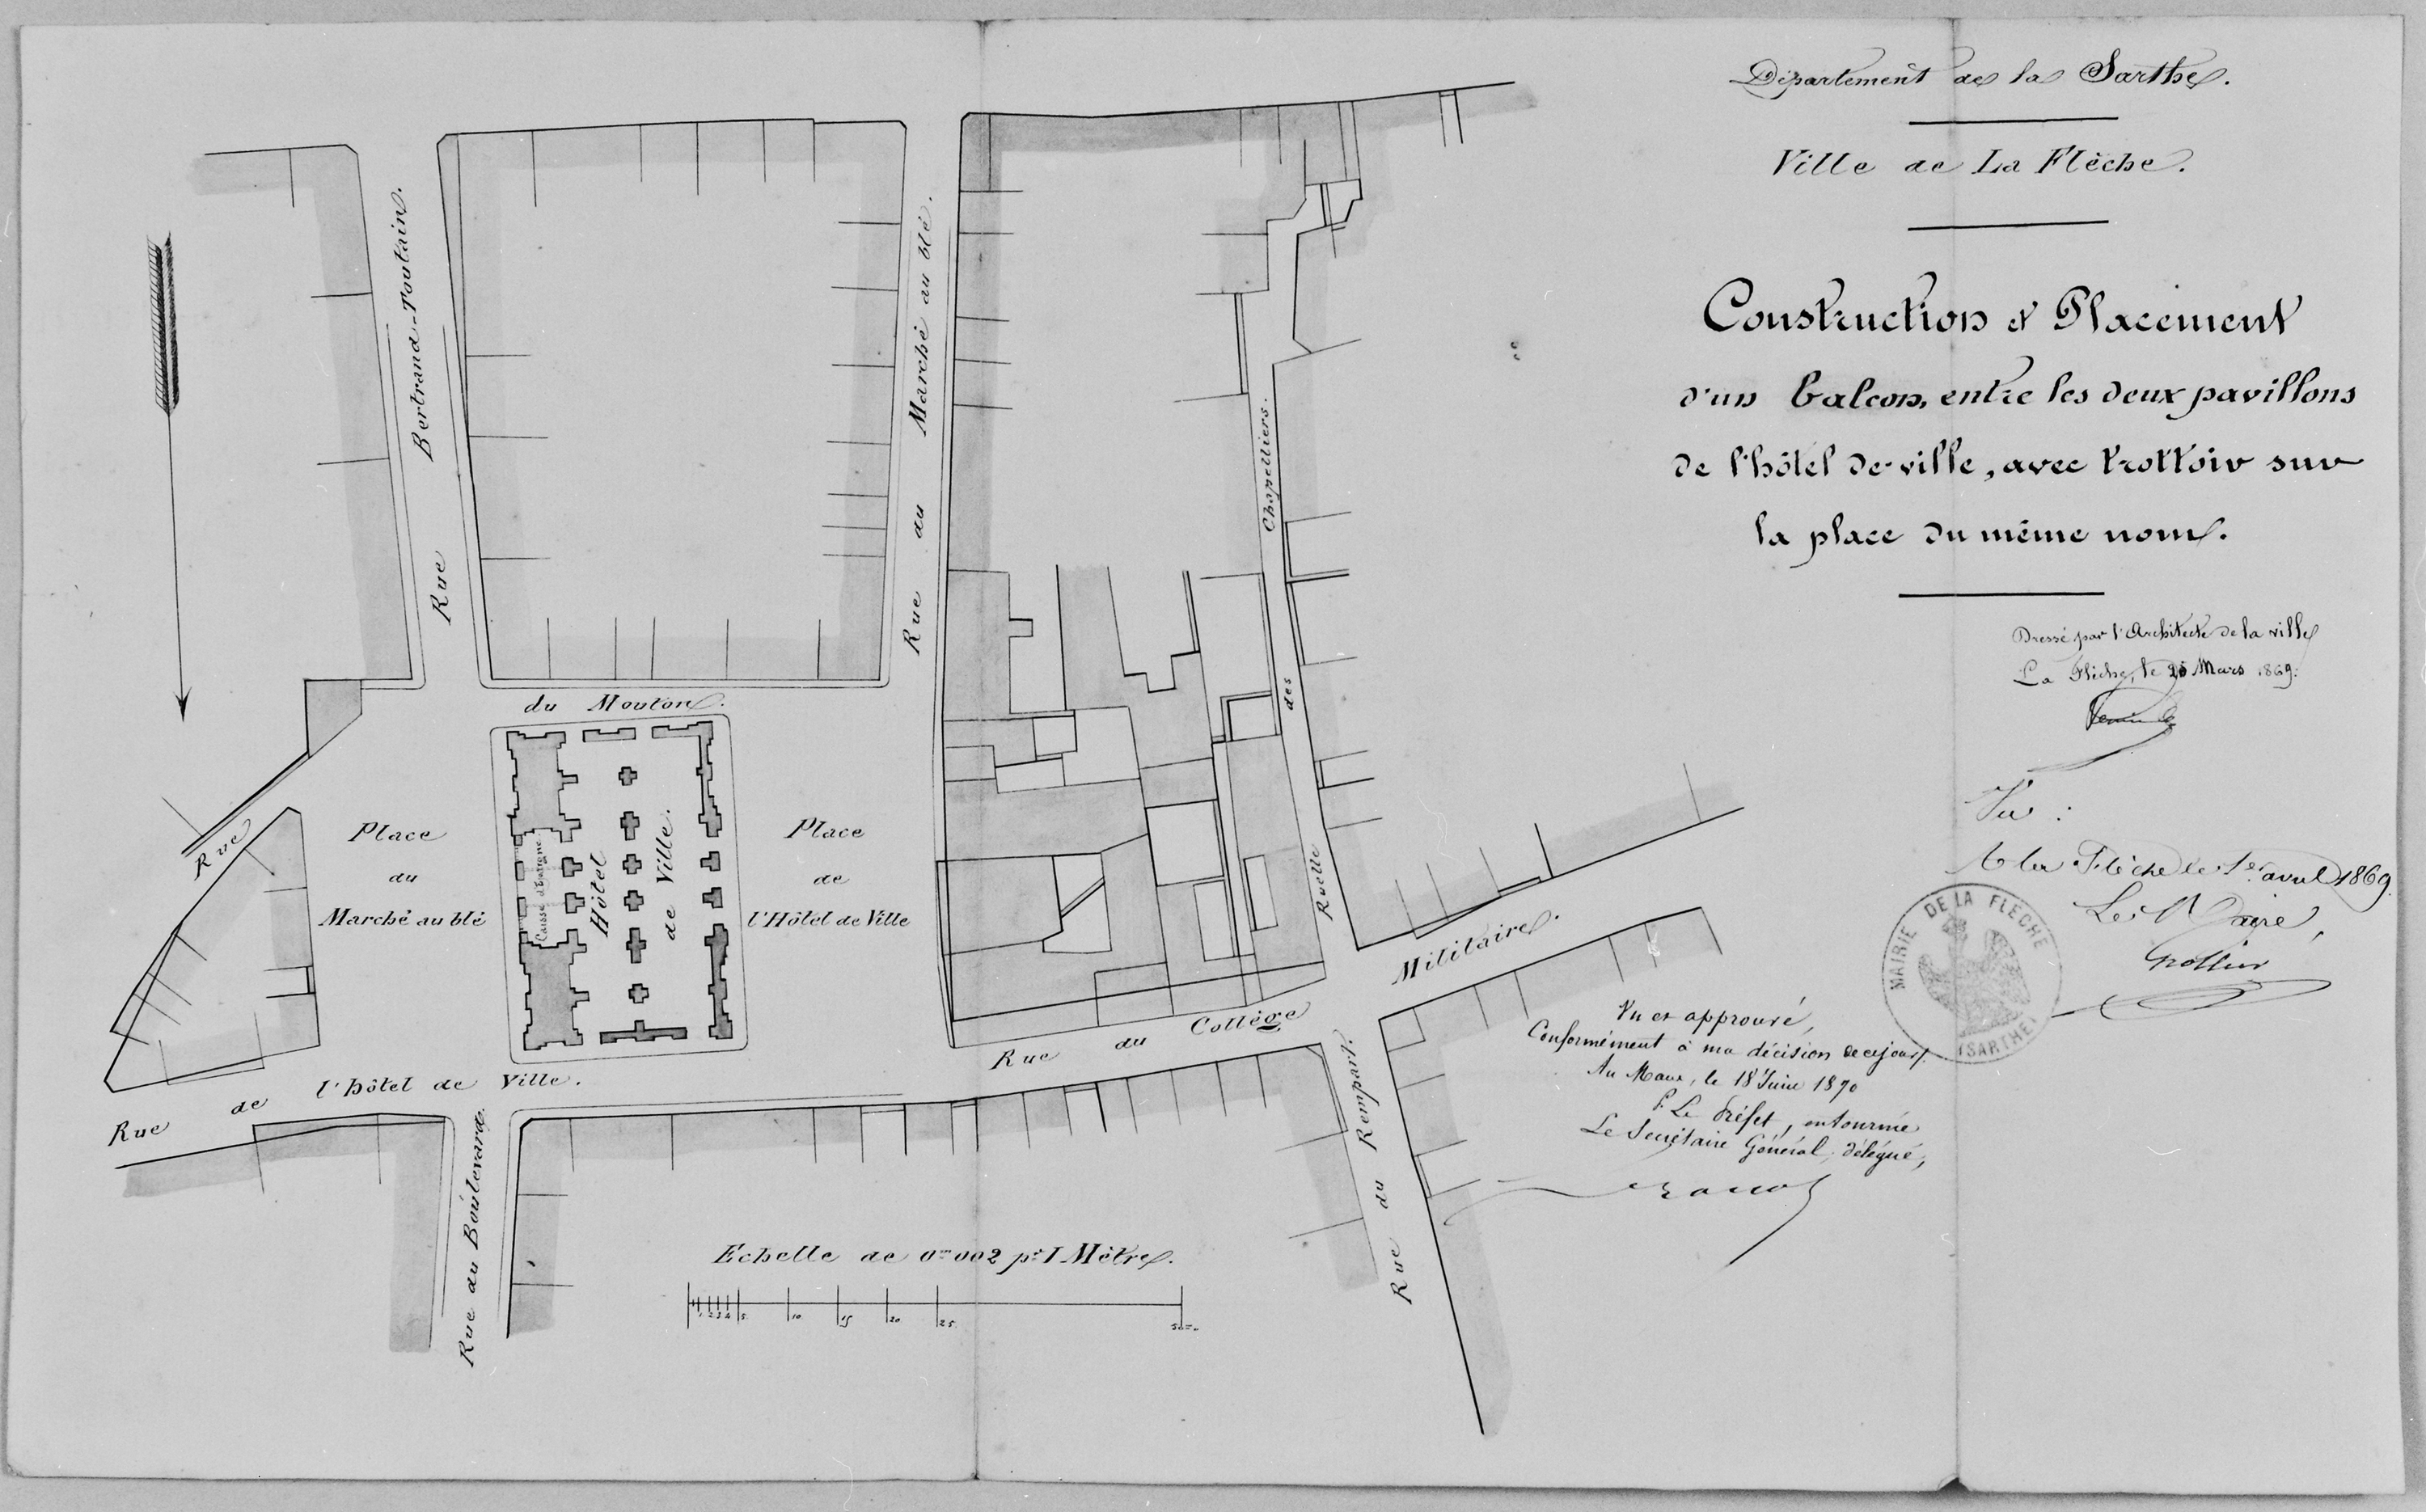 Département de la Sarthe.
Ville de La Flèche.
Construction et Placement
d'un balcon, entre les deux pavillons
de l'hôtel de ville, avec trottoir sur
la place du même nom.
Dressé par l'Architecte de la ville
La Flèche, le 25 Mars 1869.
Vu :
A la Flèche le 1er avril 1869
Le Maire,
MAIRIE DE LA FLECHE
(SARTHE)
Vu et approuvé,
Conformément à ma décision de ce jour.
Au Mans, le 18 Juin 1870
P. Le Préfet, en tournée
Le Secrétaire Général, délégué,
Rue Bertrand-Poutain.
Rue du Marché au blé.
Ruelle des Chapelliers.
Rue du Mouton.
Place
du
Marché au blé
Caisse d'Epargne
Hôtel
de Ville.
Place
de
l'Hôtel de Ville
Rue du Collège Militaire.
Rue de l'hôtel de Ville.
Rue du Boulevard.
Rue du Rempart.
Echelle de 0m002 pr 1 Mètre.
1 2 3 4 5 10 15 20 25 50m